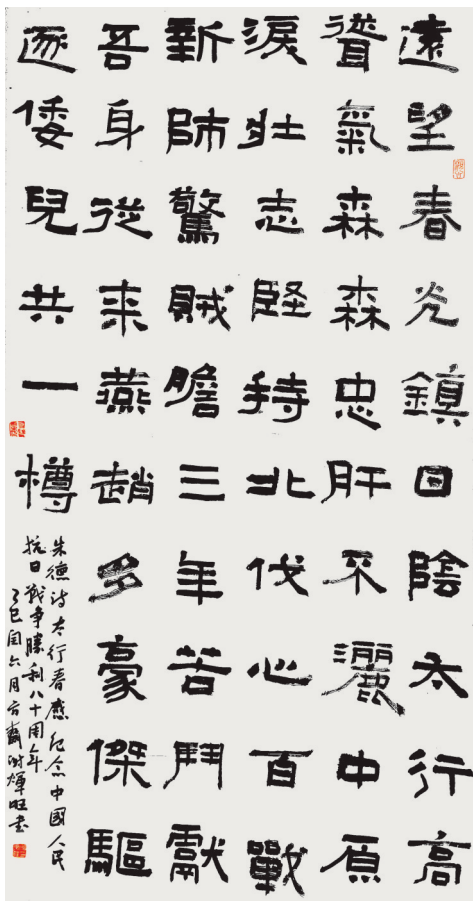 遠望春光鎮日陰太行高
聳氣森森忠肝不灑中原
淚壯志堅持北伐心百戰
新師驚賊膽三年苦鬥獻
吾身從来燕趙多豪傑驅
逐倭兒共一樽
朱德詩太行春感纪念中國人民
抗日戰争勝利八十周年
乙巳闰六月